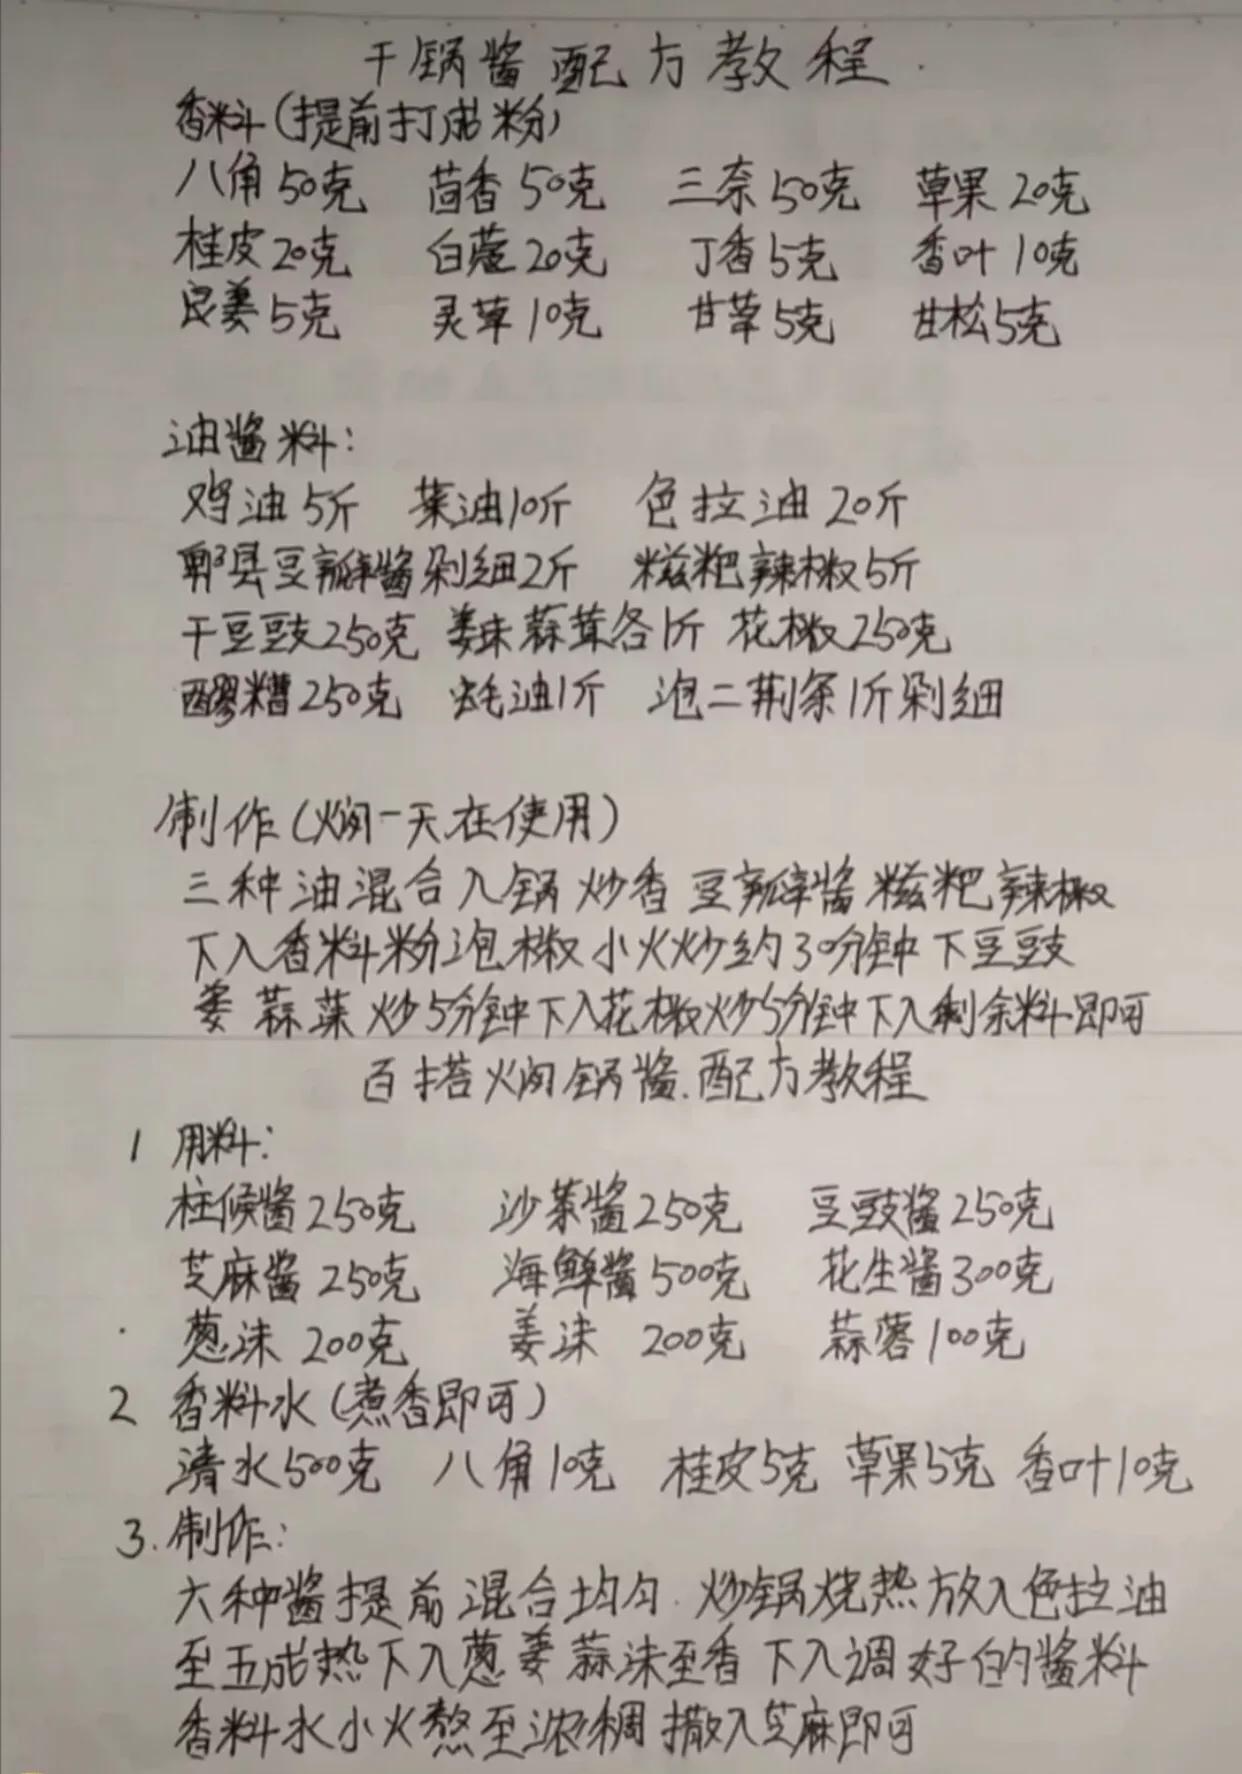 干锅酱配方教程
香料(提前打成粉)
八角50克 茴香50克 三奈50克 草果20克
桂皮20克 白蔻20克 丁香5克 香叶10克
良姜5克 灵草10克 甘草5克 甘松5克
油酱料:
鸡油5斤 菜油10斤 色拉油20斤
郫县豆瓣酱剁细2斤 糍粑辣椒5斤
干豆豉250克 姜末蒜茸各1斤 花椒250克
醪糟250克 蚝油1斤 泡二荆条1斤剁细
制作(焖一天在使用)
三种油混合入锅炒香豆瓣酱糍粑辣椒
下入香料粉泡椒小火炒约30分钟下豆豉
姜蒜菜炒5分钟下入花椒炒5分钟下入剩余料即可
百搭焖锅酱.配方教程
1 用料:
柱候酱250克 沙茶酱250克 豆豉酱250克
芝麻酱250克 海鲜酱500克 花生酱300克
葱沫200克 姜沫200克 蒜蓉100克
2 香料水(煮香即可)
清水500克 八角10克 桂皮5克 草果5克 香叶10克
3.制作:
六种酱提前混合均匀.炒锅烧热放入色拉油
至五成热下入葱姜蒜沫至香下入调好的酱料
香料水小火熬至浓稠撒入芝麻即可